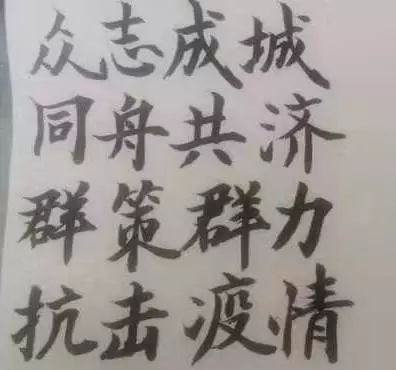 众志成城
同舟共济
群策群力
抗击疫情